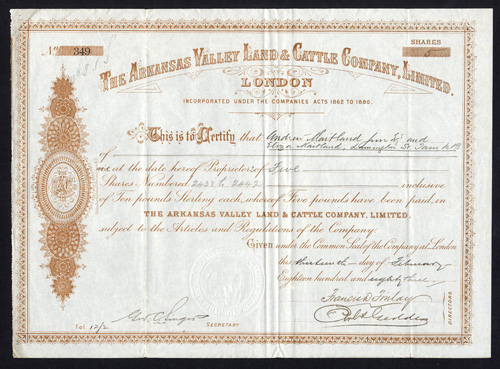 No. 349
SHARES
5
THE ARKANSAS VALLEY LAND & CATTLE COMPANY, LIMITED.
LONDON
INCORPORATED UNDER THE COMPANIES ACTS 1862 TO 1880.
This is to Certify that Andrew Maitland junr Esq and
of Eliza Maitland,
at the date hereof Proprietors of Five
Shares Numbered 2038 to 2042 inclusive
of Ten pounds Sterling each, whereof Five pounds have been paid, in
THE ARKANSAS VALLEY LAND & CATTLE COMPANY, LIMITED.
subject to the Articles and Regulations of the Company.
Given under the Common Seal of the Company at London
this thirteenth day of February
Eighteen hundred and eighty three
Francis R. Finlay
SECRETARY
DIRECTORS
Fol. 12/2